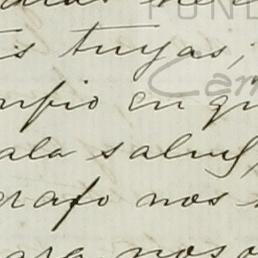 FUND
is tuyas,
Carm
nfio en qu
ala salud,
grafo nos
ara nos